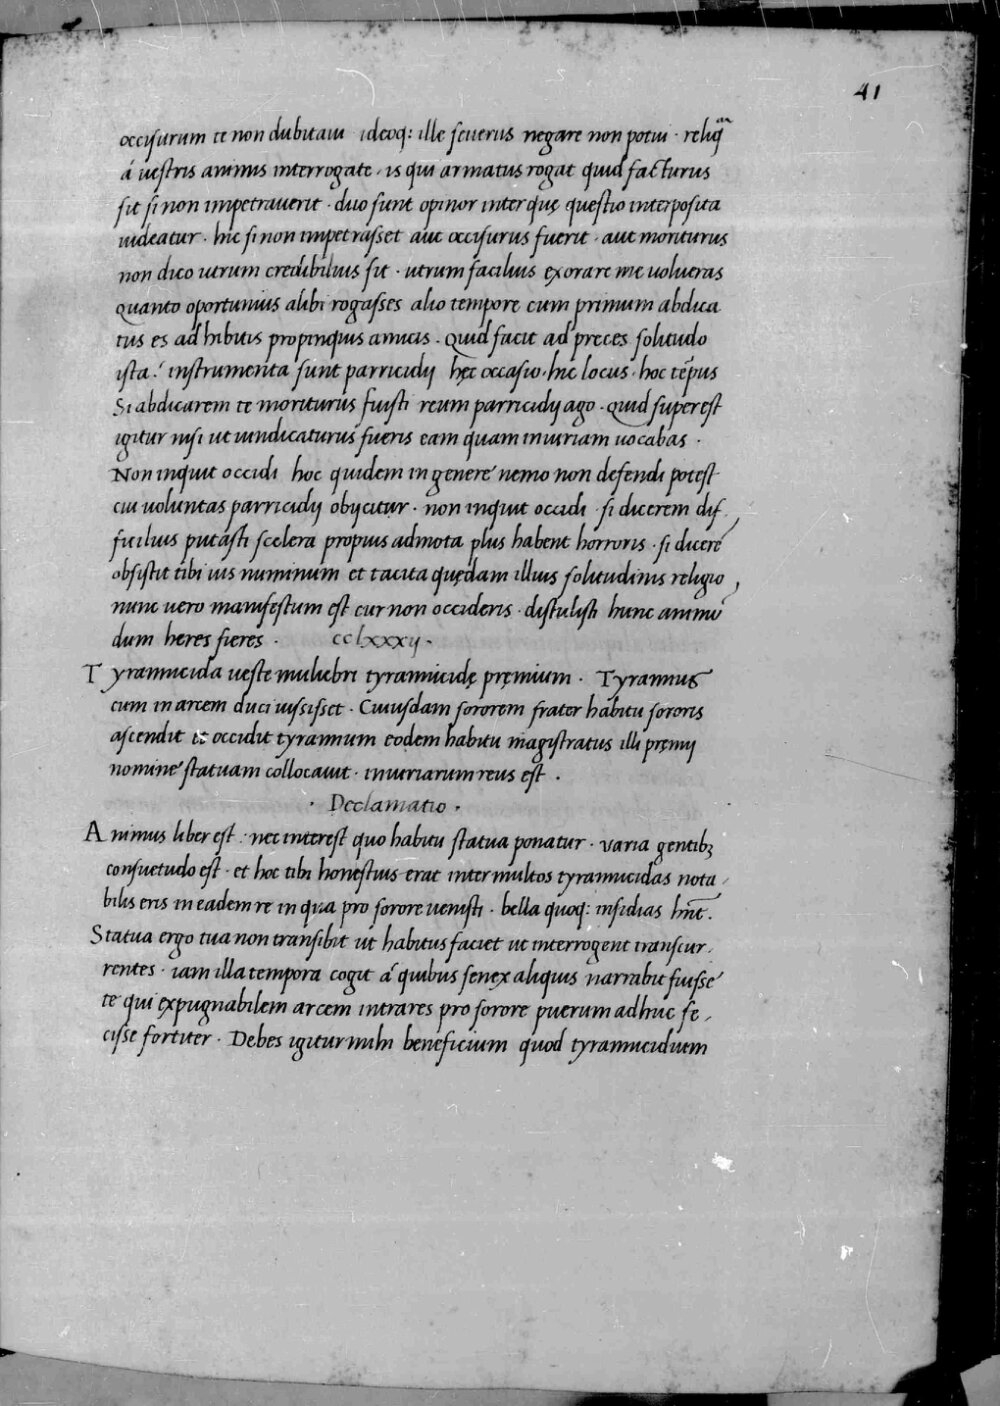 41
occisurum te non dubitaui ideoq: ille seuerus negare non potui · reliq̃
á uestris animis interrogate · is qui armatus rogat quid facturus
sit si non impetrauerit · duo sunt opinor inter quę questio interposita
uideatur · hic si non impetrasset aut occisurus fuerit · aut moriturus
non dico utrum credibilius sit · utrum facilius exorare me uolueras
quanto oportunius alibi rogasses alio tempore cum primum abdica
tus es adhibitis propinquis amicis · Quid facit ad preces solitudo
ista? instrumenta sunt parricidij hęc occasio · hic locus · hoc tẽpus
Si abdicarem te moriturus fuisti reum parricidij ago · quid superest
igitur nisi ut uindicaturus fueris eam quam iniuriam uocabas ·
Non inquit occidi hoc quidem in genere nemo non defendi potest
cui uoluntas parricidij obijcitur · non inquit occidi · si dicerem dif
ficilius putasti scelera propius admota plus habent horroris · si dicerẽ
obsistit tibi ius numinum et tacita quędam illius solitudinis religio
nunc uero manifestum est cur non occideris · distulisti hunc animũ
dum heres fieres · cclxxxij ·
Tyrannicida ueste muliebri tyrannicidę pręmium · Tyrannus
cum in arcem duci iussisset · Cuiusdam sororem frater habitu sororis
ascendit et occidit tyrannum eodem habitu magistratus illi pręmij
nomine statuam collocauit · iniuriarum reus est ·
· Declamatio ·
Animus liber est · nec interest quo habitu statua ponatur · uaria gentibꝫ
consuetudo est · et hoc tibi honestius erat inter multos tyrannicidas nota
bilis eris in eadem re in qua pro sorore uenisti · bella quoq: insidias hñt ·
Statua ergo tua non transibit ut habitus faciet ut interrogent transcur
rentes · iam illa tempora cogit á quibus senex aliquis narrabit fuisse
te qui expugnabilem arcem intrares pro sorore puerum adhuc fe
cisse fortiter · Debes igitur mihi beneficium quod tyrannicidium